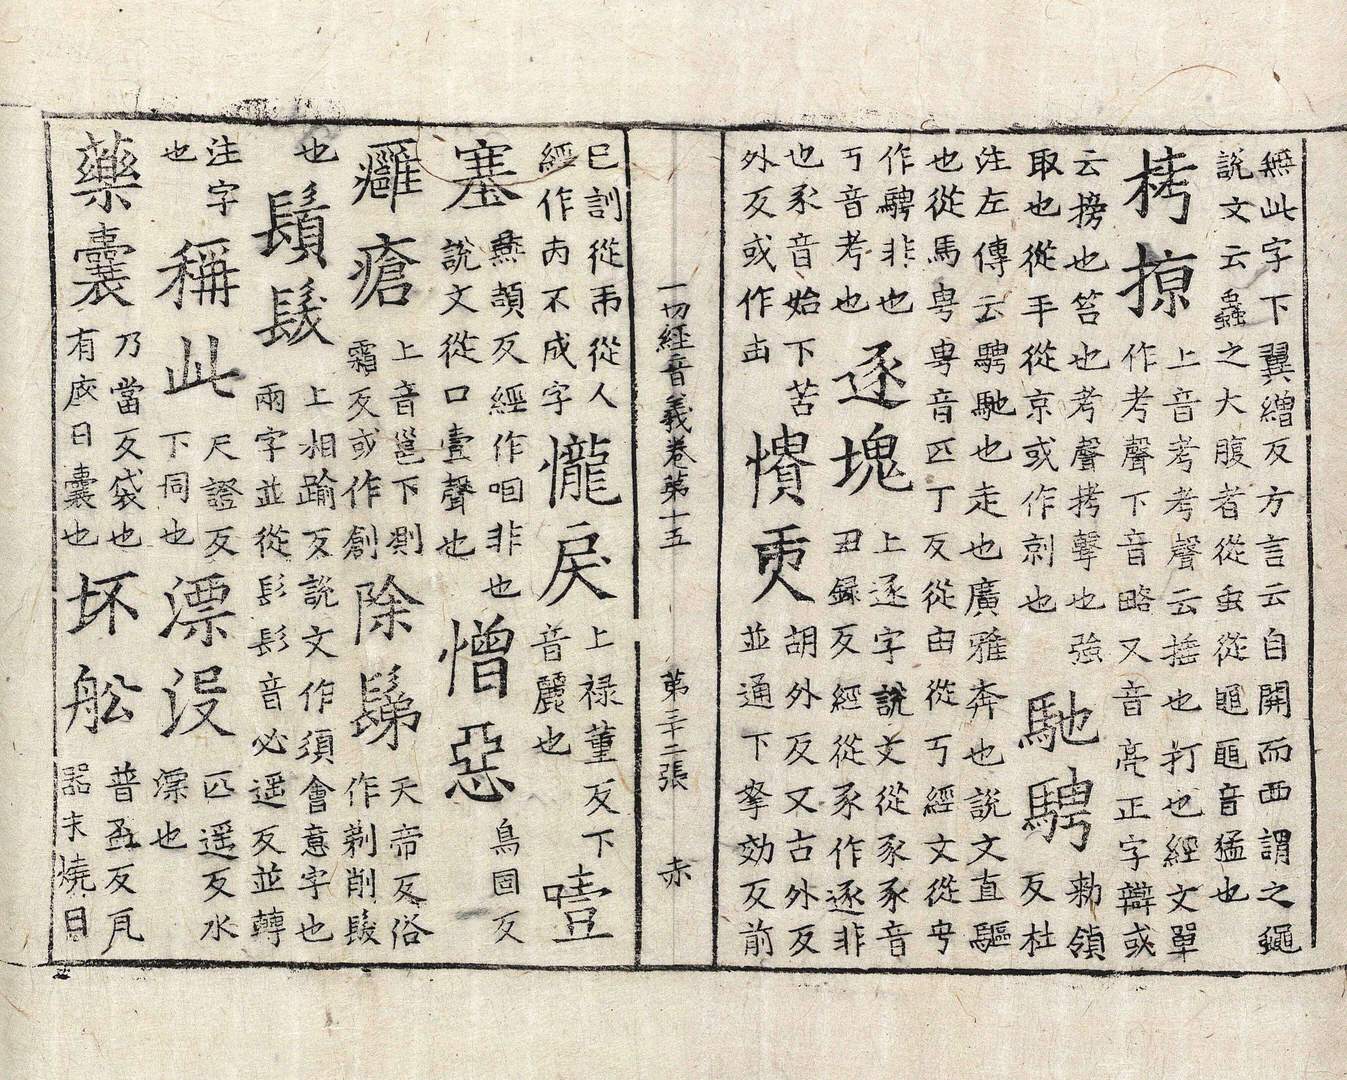 無此字下翼繒反方言云自關而西謂之蠅
說文云蟲之大腹者從虫從黽黽音猛也
栲掠
上音考考聲云捶也打也經文單
作考聲下音略又音亮正字辯或
云搒也笞也考聲拷擊也強
取也從手從京或作剠也
馳騁
勑領
反杜
注左傳云騁馳也走也廣雅奔也說文直驅
也從馬甹甹音匹丁反從由從丂經文從甹
作騁非也
丂音考也
逐塊
上逐字說文從豕豕音
丑録反經從豕作逐非
也豕音始下苦
外反或作凷
憒吏
胡外反又古外反
並通下拏効反前
一切經音義卷第十五 第三十二張 赤
已訓從帀從人
經作丙不成字
㦕戾
上禄董反下
音麗也
噎
塞
燕頡反經作咽非也
說文從口壹聲也
憎惡
烏固反
癰瘡
上音邕下則
霜反或作創
除鬀
天帝反俗
作剃削髮
也
鬚髮
上相踰反說文作須會意字也
兩字並從髟髟音必遥反並轉
注字
也
稱此
尺證反
下同也
漂没
匹遥反水
漂也
藥囊
乃當反袋也
有底曰囊也
坏舩
普盃反瓦
器未燒曰